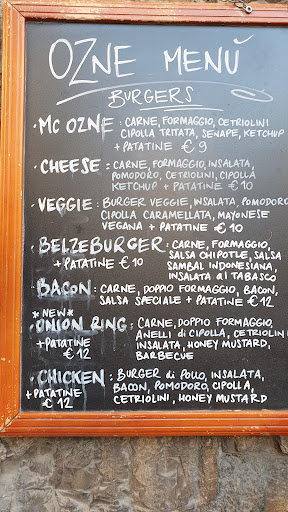 OZNE MENŬ
BURGERS
• MC OZNE : CARNE, FORMAGGIO, CETRIOLINI
CIPOLLA TRITATA, SENAPE, KETCHUP
+ PATATINE € 9
• CHEESE : CARNE, FORMAGGIO, INSALATA,
POMODORO, CETRIOLINI, CIPOLLA
KETCHUP + PATATINE € 10
• VEGGIE : BURGER VEGGIE, INSALATA, POMODORO
CIPOLLA CARAMELLATA, MAYONESE
VEGANA + PATATINE € 10
• BELZEBURGER : CARNE, FORMAGGIO,
+ PATATINE € 10 SALSA CHIPOTLE, SALSA
SAMBAL INDONESIANA,
INSALATA al TABASCO
• BACON : CARNE, DOPPIO FORMAGGIO, BACON,
SALSA SPECIALE + PATATINE € 12
*NEW*
• ONION RING : CARNE, DOPPIO FORMAGGIO,
+ PATATINE ANELLI di CIPOLLA, CETRIOLINI
€ 12 INSALATA, HONEY MUSTARD,
BARBECUE
• CHICKEN : BURGER di POLLO, INSALATA,
+ PATATINE BACON, POMODORO, CIPOLLA,
€ 12 CETRIOLINI, HONEY MUSTARD